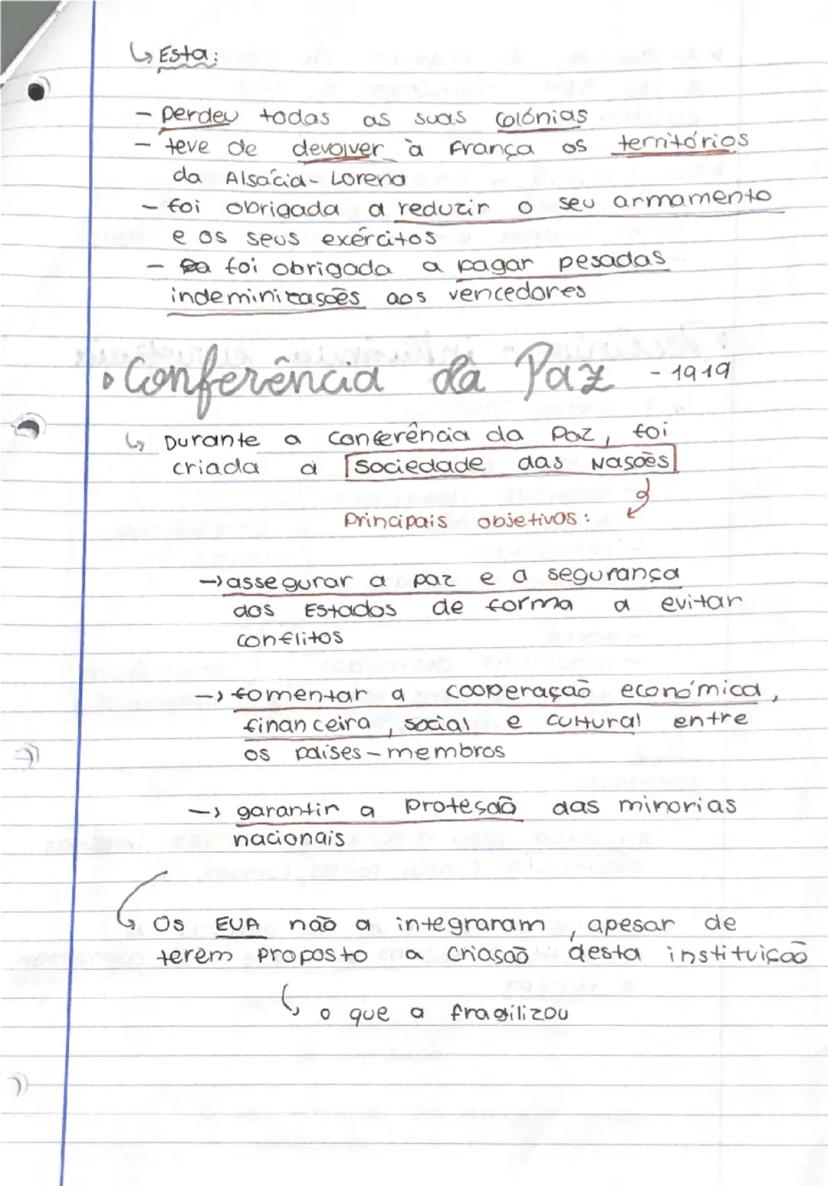 ↳ Esta:
- perdeu todas as suas colónias
- teve de devolver à França os territórios
da Alsácia-Lorena
- foi obrigada a reduzir o seu armamento
e os seus exércitos
- foi obrigada a pagar pesadas
indeminizações aos vencedores
• Conferência da Paz - 1919
↳ Durante a conferência da Paz, foi
criada a Sociedade das Nações
Principais objetivos:
→ assegurar a paz e a segurança
dos Estados de forma a evitar
conflitos
→ fomentar a cooperação económica,
financeira, social e cultural entre
os países-membros
→ garantir a proteção das minorias
nacionais
↳ Os EUA não a integraram, apesar de
terem proposto a criação desta instituição
↳ o que a fragilizou